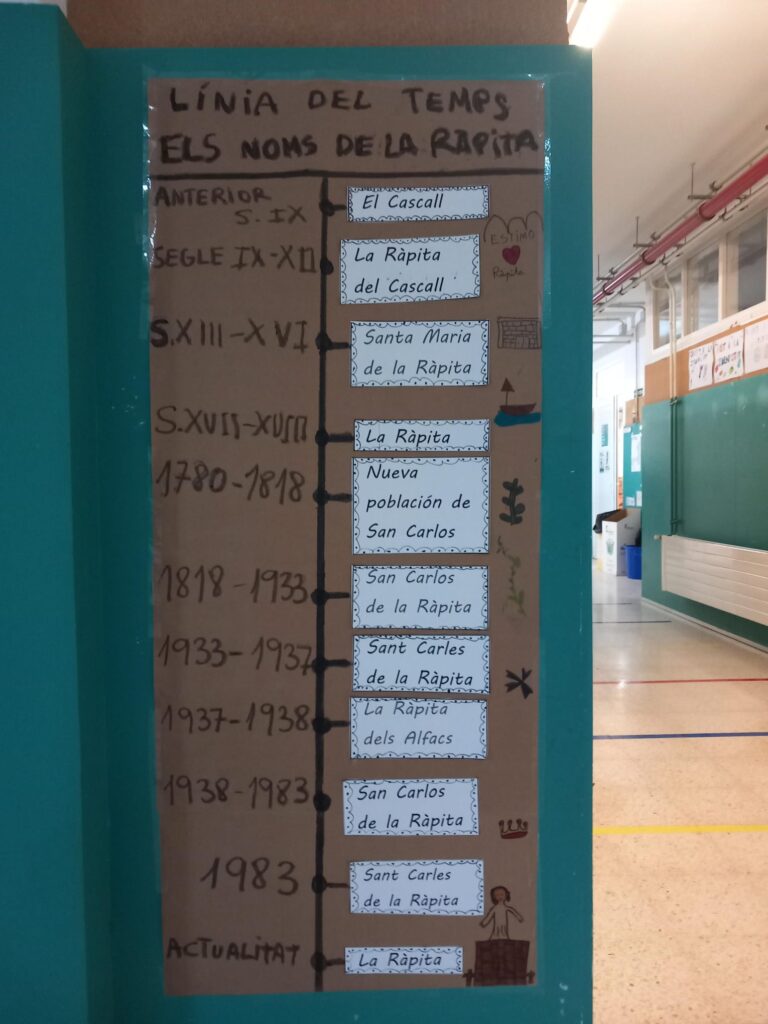 LÍNIA DEL TEMPS
ELS NOMS DE LA RÀPITA
ANTERIOR
S. IX
El Cascall
SEGLE IX-XII
La Ràpita
del Cascall
ESTIMO
Ràpita
S.XIII-XVI
Santa Maria
de la Ràpita
S.XVII-XVIII
La Ràpita
1780-1818
Nueva
población de
San Carlos
1818-1933
San Carlos
de la Ràpita
1933-1937
Sant Carles
de la Ràpita
1937-1938
La Ràpita
dels Alfacs
1938-1983
San Carlos
de la Ràpita
1983
Sant Carles
de la Ràpita
ACTUALITAT
La Ràpita